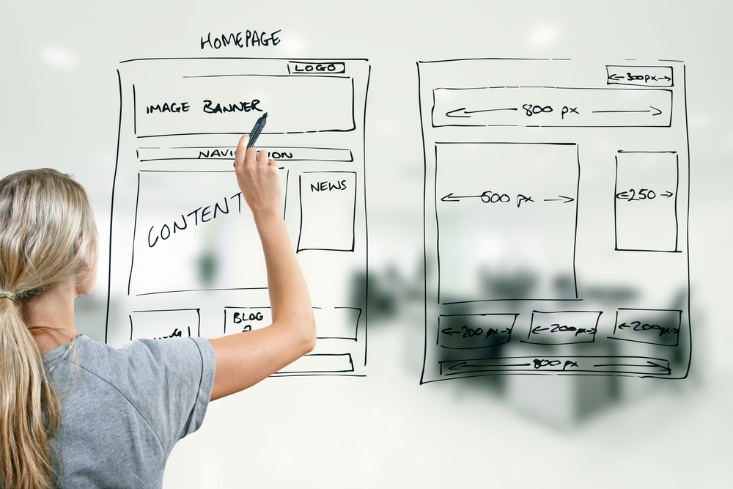 HOMEPAGE
LOGO
IMAGE BANNER
CONTENT
NEWS
BLOG
300px
800 px
600 px
250
200 px
200px
200px
800 px